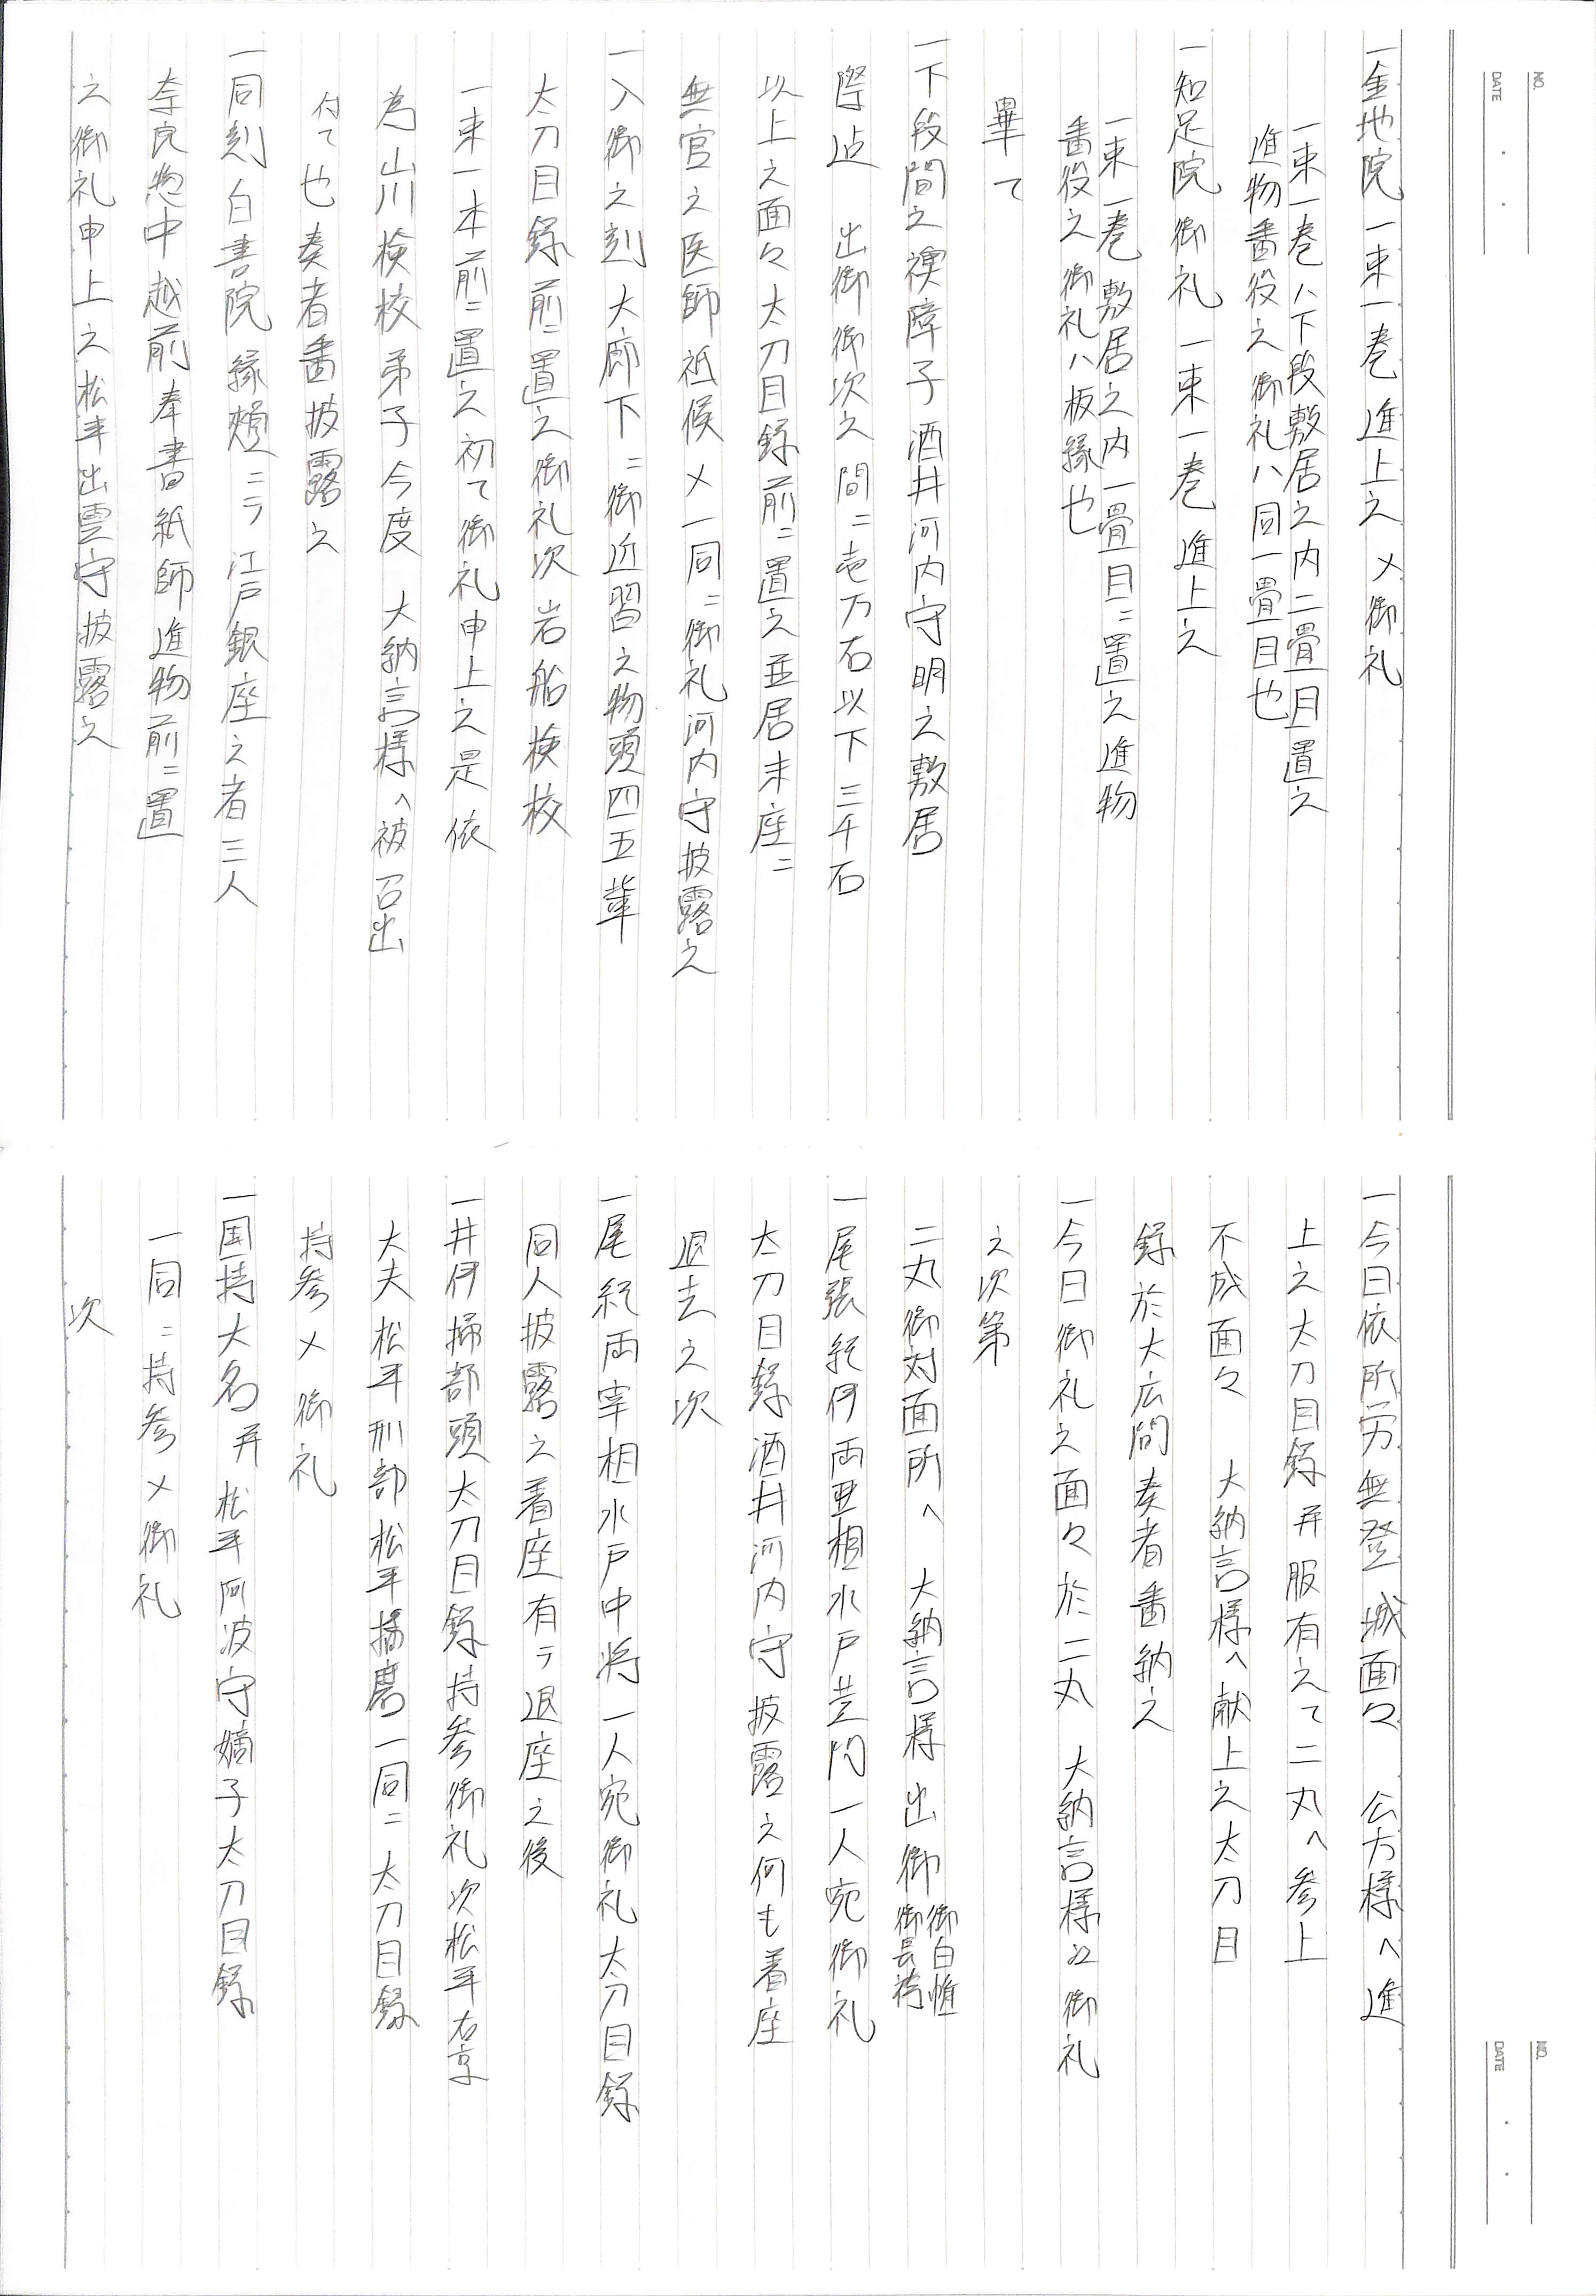 NO.
DATE
一金地院一束一巻進上之〆御礼
一束一巻ハ下段敷居之内二畳目置之
進物番役之御礼ハ同一畳目也
一知足院御礼一束一巻進上之
一束一巻敷居之内一畳目ニ置之進物
番役之御礼ハ板縁也
畢て
一下段間之襖障子酒井河内守明之敷居
際迠 出御御次之間ニ壱万石以下三千石
以上之面々太刀目録前ニ置之並居末座ニ
無官之医師祗候〆一同ニ御礼河内守披露之
一入御之刻大廊下ニ御近習之物頭四五輩
太刀目録前ニ置之御礼次岩船検校
一束一本前ニ置之初て御礼申上之是依
為山川検校弟子今度 大納言様へ被召出
付て也奏者番披露之
一同刻白書院縁頬ニテ江戸銀座之者三人
奈良惣中越前奉書紙師進物前ニ置
之御礼申上之松平出雲守披露之
NO.
DATE
一今日依所労無登城面々 公方様へ進
上之太刀目録并服有之て二丸へ参上
不成面々 大納言様へ献上之太刀目
録於大広間奏者番納之
一今日御礼之面々於二丸 大納言様江御礼
之次第
二丸御対面所へ 大納言様出御御白帷御長袴
一尾張紀伊両亜相水戸黄門一人宛御礼
太刀目録酒井河内守披露之何も着座
退去之次
一尾紀両宰相水戸中将一人宛御礼太刀目録
同人披露之着座有テ退座之後
一井伊掃部頭太刀目録持参御礼次松平右京
大夫松平刑部松平播磨一同ニ太刀目録
持参〆御礼
一国持大名并松平阿波守嫡子太刀目録
一同ニ持参〆御礼
次